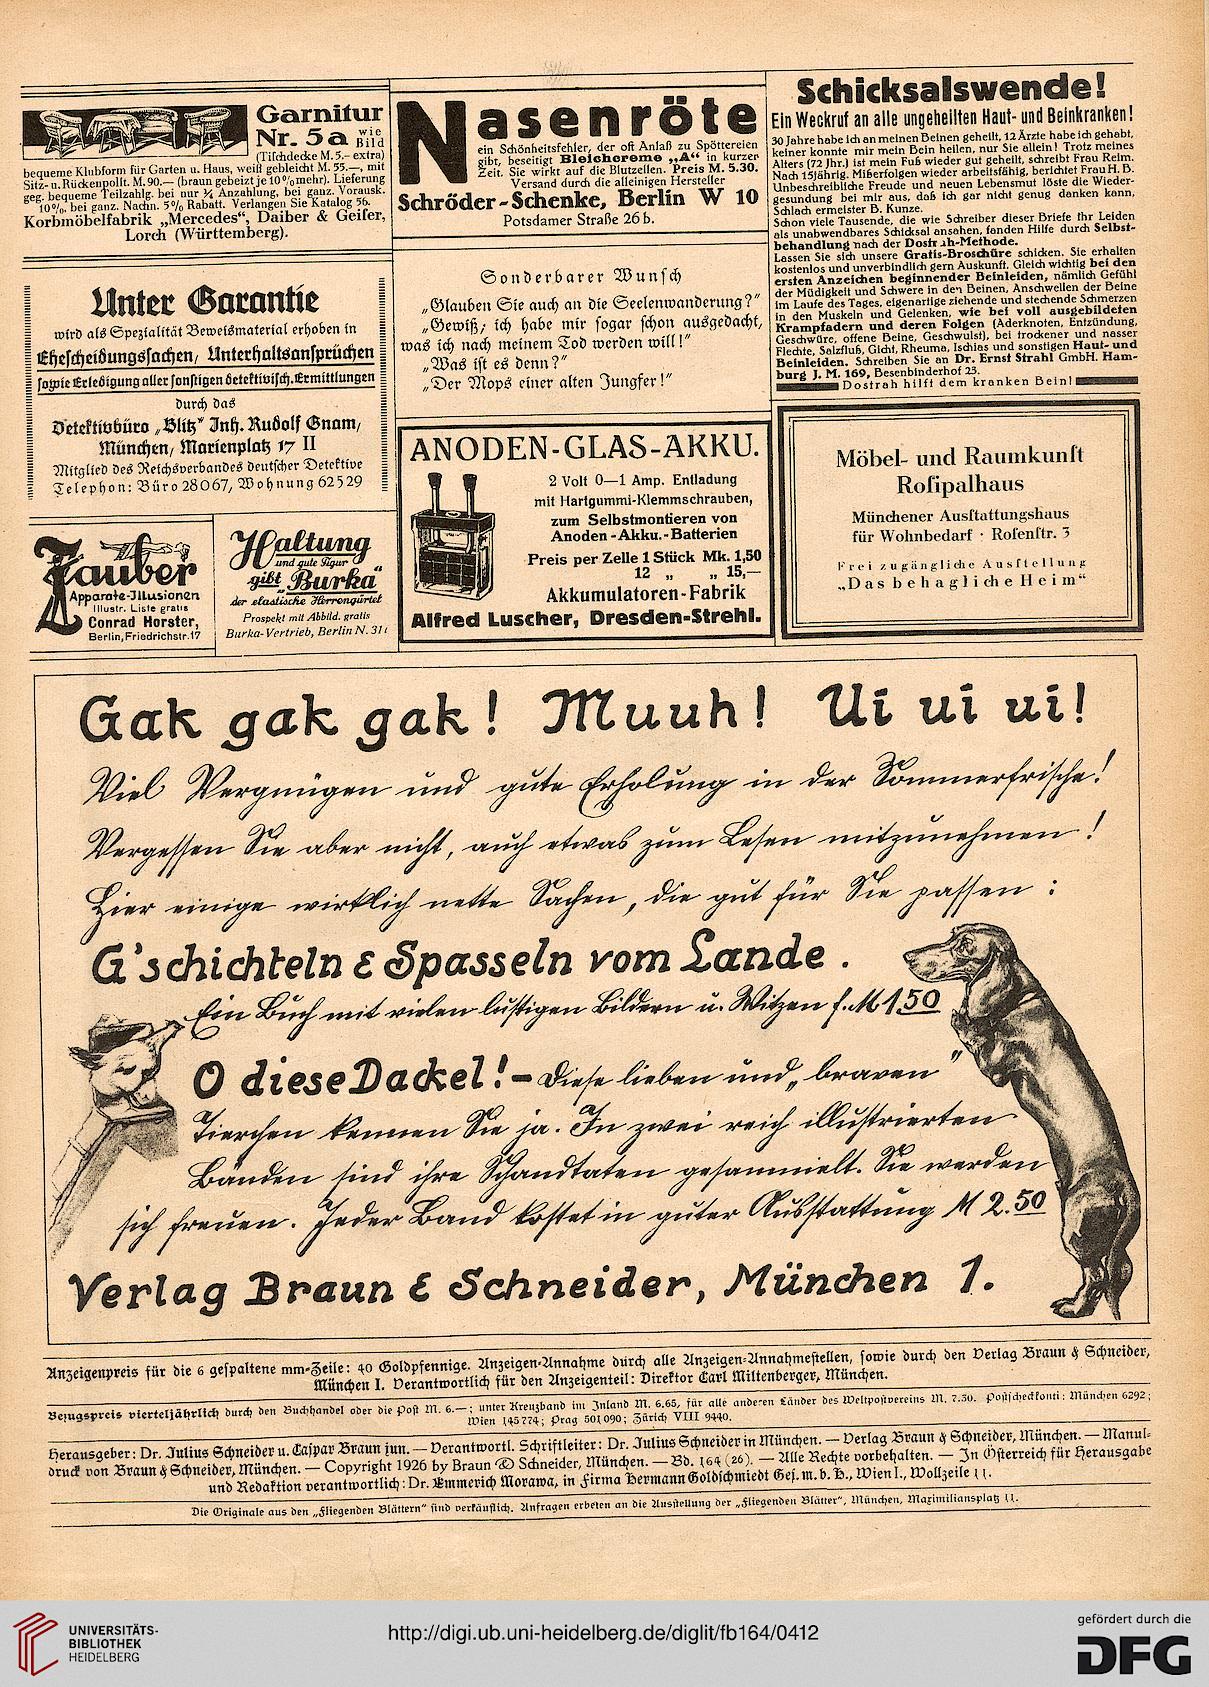 Garnitur
Nr. 5a wie Bild
(Tischdecke M. 5.– extra)
bequeme Klubform für Garten u. Haus, weiß gebleicht M. 55.—, mit
Sitz- u. Rückenpolst. M. 90.— (braun gebeizt je 10% mehr). Lieferung
geg. bequeme Teilzahlg. bei nur ¼ Anzahlung, bei ganz. Vorausk.
10%, bei ganz. Nachn. 5% Rabatt. Verlangen Sie Katalog 56.
Korbmöbelfabrik „Mercedes“, Daiber & Geifer,
Lorch (Württemberg).
Unter Garantie
wird als Spezialität Beweismaterial erhoben in
Ehescheidungssachen, Unterhaltsansprüchen
sowie Erledigung aller sonstigen detektivisch. Ermittlungen
durch das
Detektivbüro „Blitz“ Inh. Rudolf Gnam,
München, Marienplatz 17 II
Mitglied des Reichsverbandes deutscher Detektive
Telephon: Büro 28067, Wohnung 62529
Zauber
Apparate-Jllusionen
Illustr. Liste gratis
Conrad Horster,
Berlin, Friedrichstr. 17
Haltung
und gute Figur
gibt „Burka“
der elastische Herrengürtel
Prospekt mit Abbild. gratis
Burka-Vertrieb, Berlin N. 31
Nasenröte
ein Schönheitsfehler, der oft Anlaß zu Spöttereien
gibt, beseitigt Bleichcreme „A“ in kurzer
Zeit. Sie wirkt auf die Blutzellen. Preis M. 5.30.
Versand durch die alleinigen Hersteller
Schröder-Schenke, Berlin W 10
Potsdamer Straße 26 b.
Sonderbarer Wunsch
„Glauben Sie auch an die Seelenwanderung?“
„Gewiß; ich habe mir sogar schon ausgedacht,
was ich nach meinem Tod werden will!“
„Was ist es denn?“
„Der Mops einer alten Jungfer!“
ANODEN-GLAS-AKKU.
2 Volt 0—1 Amp. Entladung
mit Hartgummi-Klemmschrauben,
zum Selbstmontieren von
Anoden-Akku.-Batterien
Preis per Zelle 1 Stück Mk. 1,50
12 „ „ 15,—
Akkumulatoren-Fabrik
Alfred Luscher, Dresden-Strehl.
Schicksalswende!
Ein Weckruf an alle ungeheilten Haut- und Beinkranken!
30 Jahre habe ich an meinen Beinen geheilt, 12 Ärzte habe ich gehabt,
keiner konnte mir mein Bein heilen, nur Sie allein! Trotz meines
Alters (72 Jhr.) ist mein Fuß wieder gut geheilt, schreibt Frau Reim.
Nach 15jährig. Mißerfolgen wieder arbeitsfähig, berichtet Frau H. B.
Unbeschreibliche Freude und neuen Lebensmut löste die Wieder-
gesundung bei mir aus, daß ich gar nicht genug danken kann,
Schlachermeister B. Kunze.
Schon viele Tausende, die wie Schreiber dieser Briefe ihr Leiden
als unabwendbares Schicksal ansahen, fanden Hilfe durch Selbst-
behandlung nach der Dostrah-Methode.
Lassen Sie sich unsere Gratis-Broschüre schicken. Sie erhalten
kostenlos und unverbindlich gern Auskunft. Gleich wichtig bei den
ersten Anzeichen beginnender Beinleiden, nämlich Gefühl
der Müdigkeit und Schwere in den Beinen, Anschwellen der Beine
im Laufe des Tages, eigenartige ziehende und stechende Schmerzen
in den Muskeln und Gelenken, wie bei voll ausgebildeten
Krampfadern und deren Folgen (Aderknoten, Entzündung,
Geschwüre, offene Beine, Geschwulst), bei trockener und nasser
Flechte, Salzfluß, Gicht, Rheuma, Ischias und sonstigen Haut- und
Beinleiden. Schreiben Sie an Dr. Ernst Strahl GmbH. Ham-
burg J. M. 169, Besenbinderhof 23.
Dostrah hilft dem kranken Bein!
Möbel- und Raumkunst
Rosipalhaus
Münchener Ausstattungshaus
für Wohnbedarf · Rosenstr. 3
Frei zugängliche Ausstellung
„Das behagliche Heim“
Gak gak gak! Muuh! Ui ui ui!
Viel Vergnügen und gute Erholung in der Sommerfrische!
Vergessen Sie aber nicht, auch etwas zum Lesen mitzunehmen!
Hier einige wirklich nette Sachen, die gut für Sie passen:
G'schichteln & Spasseln vom Lande.
Ein Buch mit vielen lustigen Bildern u. Witzen f. M 1.50
O diese Dackel! – Diese lieben und „braven“
Tierchen kennen Sie ja. In zwei reich illustrierten
Bänden sind ihre Schandtaten gesammelt. Sie werden
sich freuen. Jeder Band kostet in guter Ausstattung M 2.50
Verlag Braun & Schneider, München 1.
Anzeigenpreis für die 6 gespaltene mm-Zeile: 40 Goldpfennige. Anzeigen-Annahme durch alle Anzeigen-Annahmestellen, sowie durch den Verlag Braun & Schneider,
München I. Verantwortlich für den Anzeigenteil: Direktor Carl Miltenberger, München.
Bezugspreis vierteljährlich durch den Buchhandel oder die Post M. 6.—; unter Kreuzband im Inland M. 6.65, für alle anderen Länder des Weltpostvereins M. 7.50. Postscheckkonti: München 6292;
Wien 145774; Prag 501090; Zürich VIII 9440.
Herausgeber: Dr. Julius Schneider u. Caspar Braun jun. — Verantwortl. Schriftleiter: Dr. Julius Schneider in München. — Verlag Braun & Schneider, München. — Manul-
druck von Braun & Schneider, München. — Copyright 1926 by Braun & Schneider, München. — Bd. 164 (26). — Alle Rechte vorbehalten. — In Österreich für Herausgabe
und Redaktion verantwortlich: Dr. Emmerich Morawa, in Firma Hermann Goldschmiedt Ges. m. b. H., Wien I., Wollzeile 11.
Die Originale aus den „Fliegenden Blättern“ sind verkäuflich. Anfragen erbeten an die Ausstellung der „Fliegenden Blätter“, München, Maximiliansplatz 11.
UNIVERSITÄTS-
BIBLIOTHEK
HEIDELBERG
http://digi.ub.uni-heidelberg.de/diglit/fb164/0412
gefördert durch die
DFG